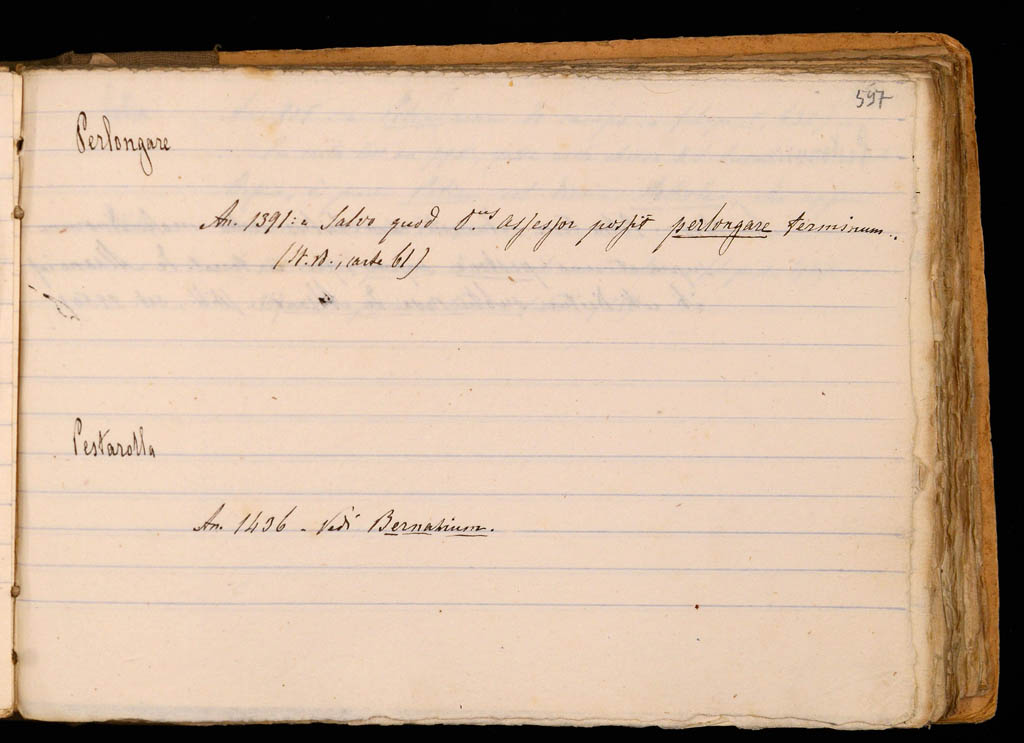 597
Perlongare
An. 1391: « Salvo quod d.nus assessor possit perlongare terminum..
(St. B., carte 61)
Pestarolla
An. 1436 - Vedi Bernatium.